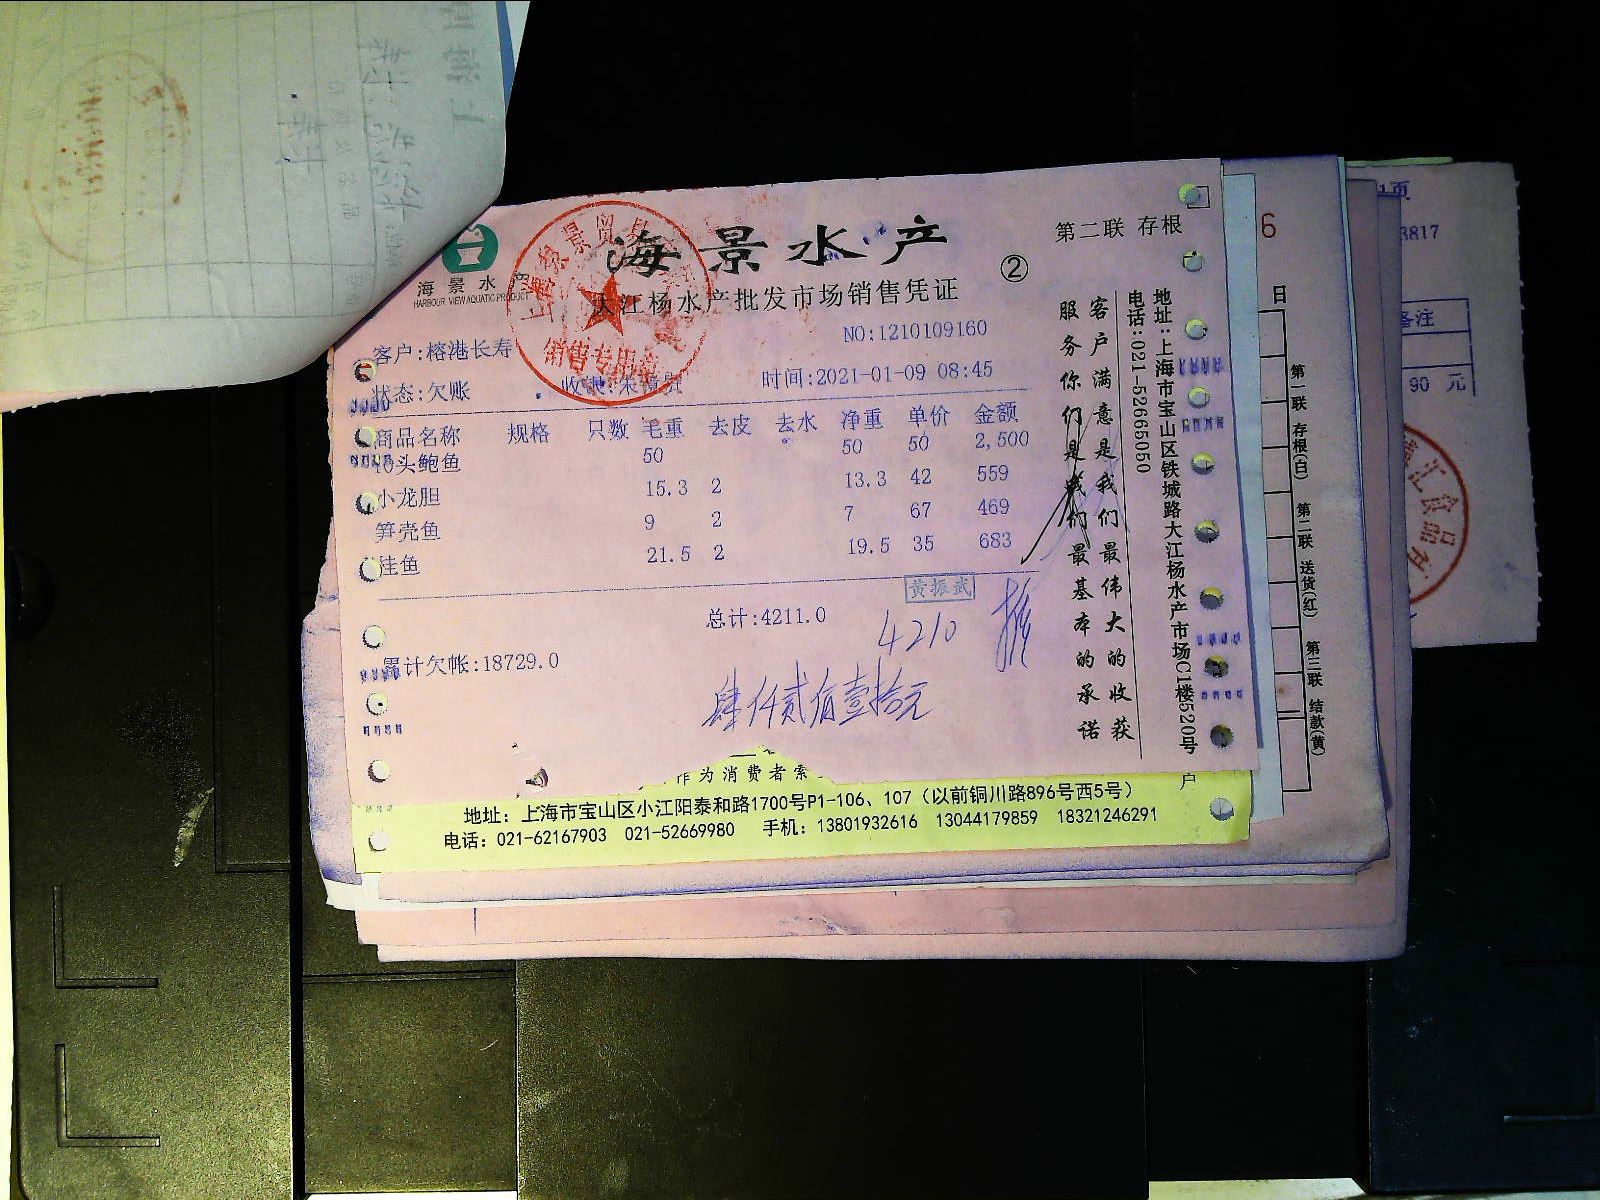 海景水产
第二联 存根
②
海景水
HARBOUR VIEW AQUATIC PRODUCT
大江杨水产批发市场销售凭证
NO:1210109160
客户:榕港长寿
状态:欠账
时间:2021-01-09 08:45
商品名称 规格 只数 毛重 去皮 去水 净重 单价 金额
10头鲍鱼 50 50 50 2,500
小龙胆 15.3 2 13.3 42 559
笋壳鱼 9 2 7 67 469
桂鱼 21.5 2 19.5 35 683
黄振武
总计:4211.0
4210
累计欠帐:18729.0
肆仟贰佰壹拾元
销售专用章
客户满意是我们最伟大的收获
服务你们是我们最基本的承诺
地址:上海市宝山区铁城路大江杨水产市场C1楼520号
电话:021-52665050
作为消费者索
户
地址：上海市宝山区小江阳泰和路1700号P1-106、107（以前铜川路896号西5号）
电话：021-62167903 021-52669980 手机：13801932616 13044179859 18321246291
6
日
第一联 存根(白)
第二联 送货(红)
第三联 结款(黄)
1页
3817
备注
90 元